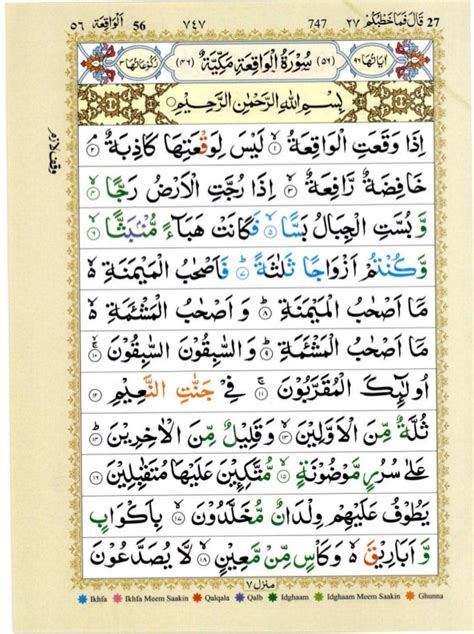 27 قَالَ فَمَا خَطْبُكُمْ ٢٧ 747 ٧٤٧ 56 اَلْوَاقِعَة ٥٦
اٰيَاتُهَا ٩٦ (٥٦) سُوْرَةُ الْوَاقِعَةِ مَكِّيَّةٌ (٤٦) رُكُوْعَاتُهَا ٣
بِسْمِ اللهِ الرَّحْمٰنِ الرَّحِيْمِ
وقف لازم
اِذَا وَقَعَتِ الْوَاقِعَةُ ۙ ١ لَيْسَ لِوَقْعَتِهَا كَاذِبَةٌ ۘ ٢
خَافِضَةٌ رَّافِعَةٌ ۙ ٣ اِذَا رُجَّتِ الْاَرْضُ رَجًّا ۙ ٤
وَّ بُسَّتِ الْجِبَالُ بَسًّا ۙ ٥ فَكَانَتْ هَبَآءً مُّنْۢبَثًّا ۙ ٦
وَّكُنْتُمْ اَزْوَاجًا ثَلٰثَةً ؕ ٧ فَاَصْحٰبُ الْمَيْمَنَةِ ۙ۬
مَاۤ اَصْحٰبُ الْمَيْمَنَةِ ؕ ٨ وَ اَصْحٰبُ الْمَشْـَٔمَةِ ۙ۬
مَاۤ اَصْحٰبُ الْمَشْـَٔمَةِ ؕ ٩ وَالسّٰبِقُوْنَ السّٰبِقُوْنَ ۚۙ ١٠
اُولٰٓئِكَ الْمُقَرَّبُوْنَ ۚ ١١ فِيْ جَنّٰتِ النَّعِيْمِ ١٢
ثُلَّةٌ مِّنَ الْاَوَّلِيْنَ ۙ ١٣ وَقَلِيْلٌ مِّنَ الْاٰخِرِيْنَ ؕ ١٤
عَلٰى سُرُرٍ مَّوْضُوْنَةٍ ۙ ١٥ مُّتَّكِـِٕيْنَ عَلَيْهَا مُتَقٰبِلِيْنَ ١٦
يَطُوْفُ عَلَيْهِمْ وِلْدَانٌ مُّخَلَّدُوْنَ ۙ ١٧ بِاَكْوَابٍ
وَّ اَبَارِيْقَ ۙ۬ وَكَاْسٍ مِّنْ مَّعِيْنٍ ۙ ١٨ لَّا يُصَدَّعُوْنَ
منزل ٧
Ikhfa Ikhfa Meem Saakin Qalqala Qalb Idghaam Idghaam Meem Saakin Ghunna